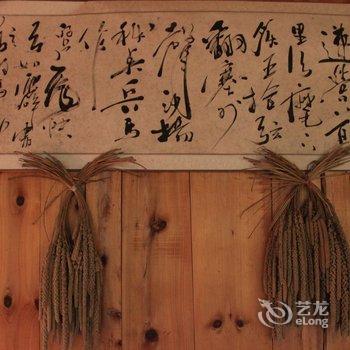 連營八百
里分麾下
炙五十弦
翻塞外
聲沙場
秋點兵馬
作
的盧飛快
弓如霹靂
艺龙
eLong